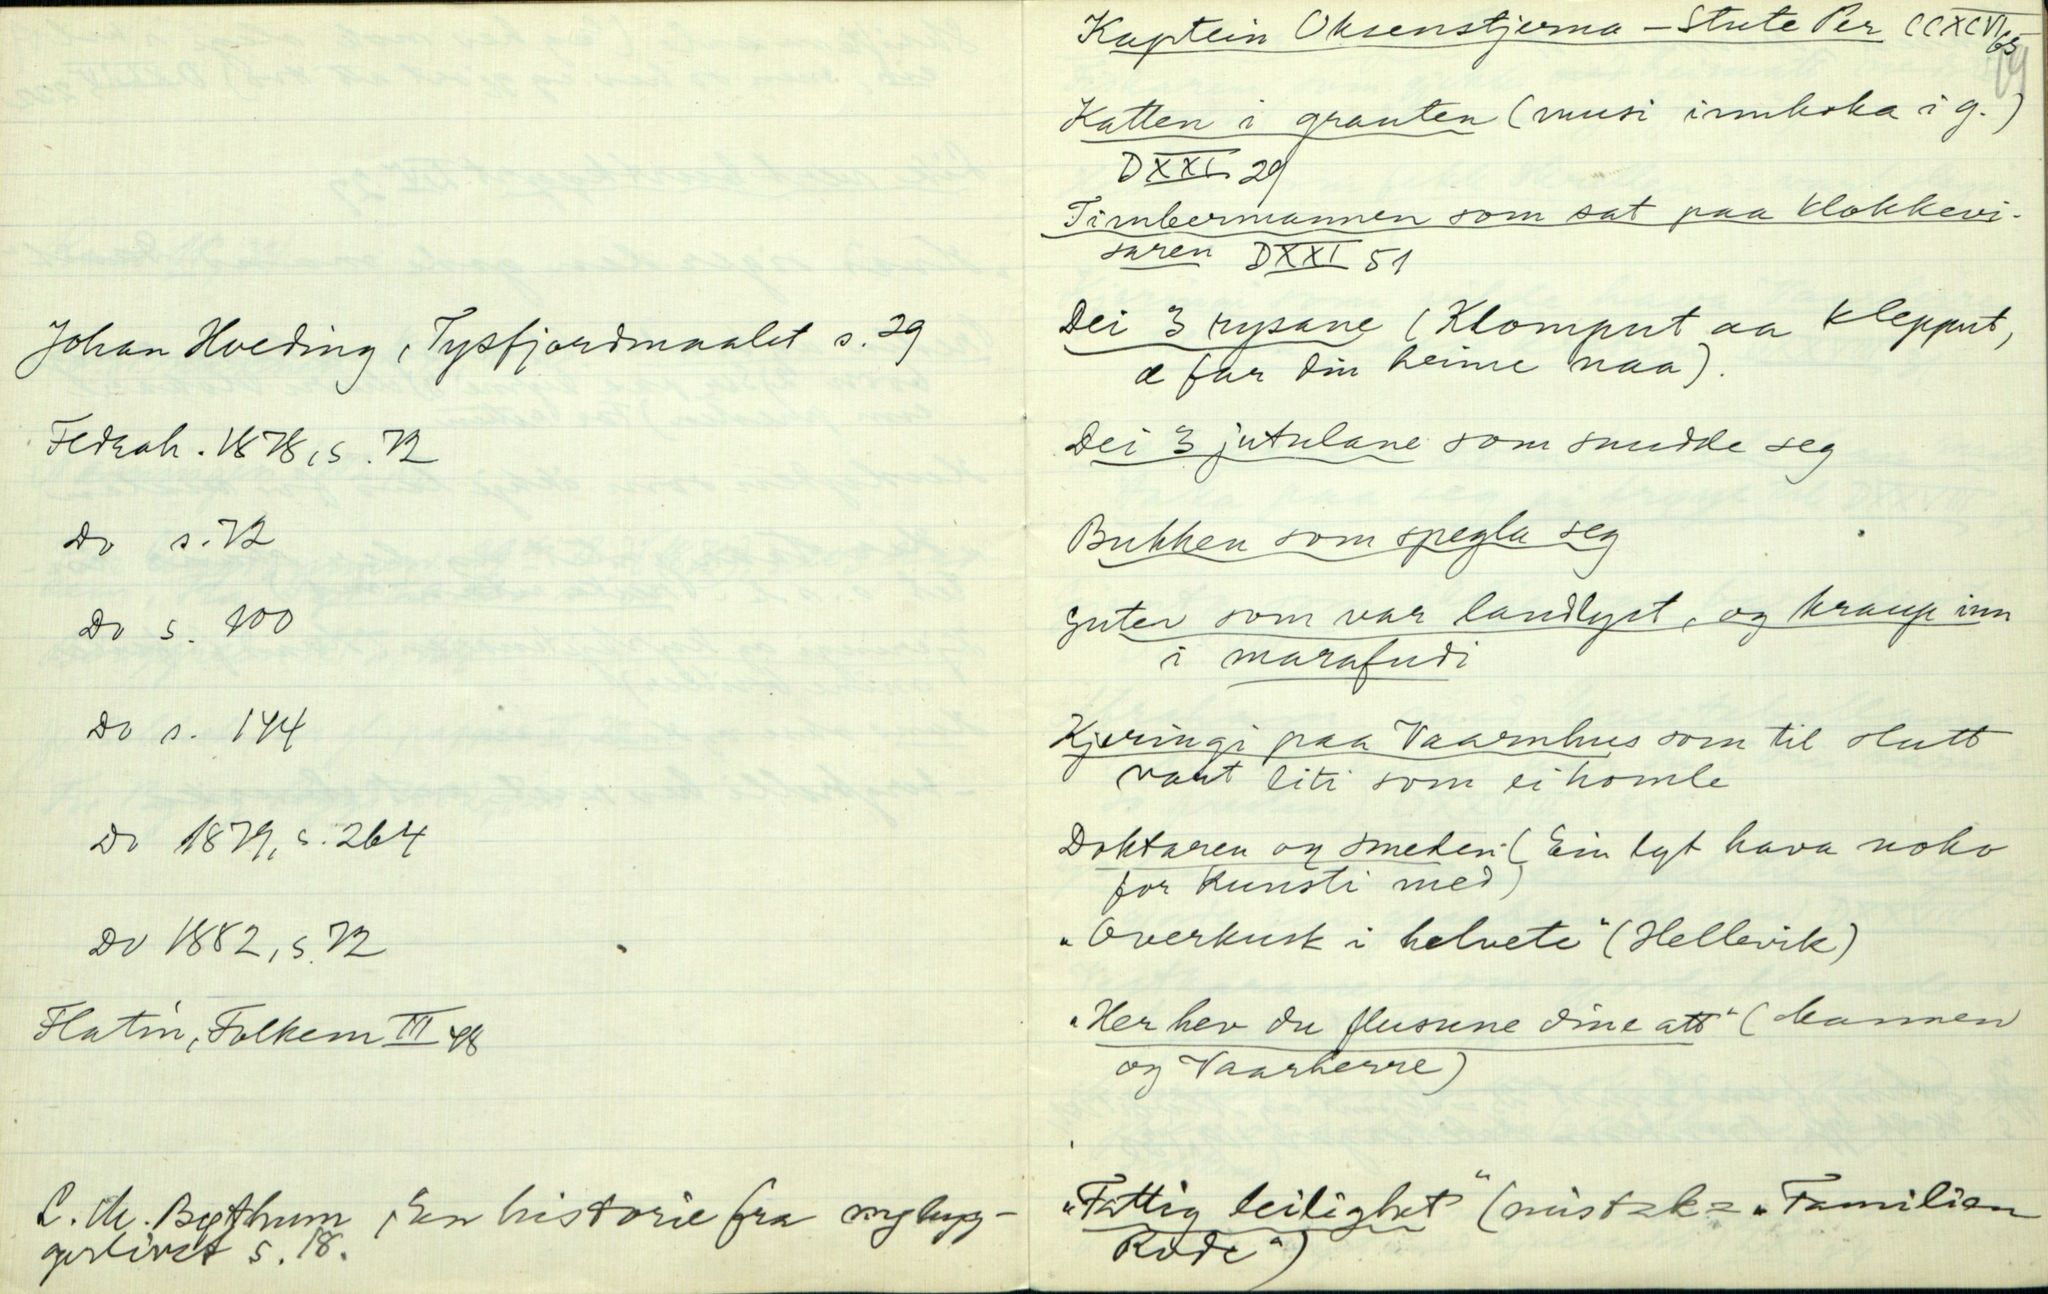 Johan Hveding, Tysfjordmaalet s. 29
Fedrah. 1878, s. 72
Do s. 72
Do s. 100
Do s. 144
Do 1879, s. 264
Do 1882, s. 72
Flatin, Folkem III 48
L. M. Bythum, En historie fra nybyg-
gerlivet s. 18.
Kaptein Oksenstjerna - Stute Per CCXCVI 65
Katten i grauten (musi innkoka i g.)
DXXI 29
Timbermannen som sat paa klokkevi-
saren DXXI 51
Dei 3 rysane (Klomput aa klepput,
æ far din heime naa).
Dei 3 jutulane som snudde seg
Bukken som spegla seg
Guten som var landlyst, og kraup inn
i marafudi
Kjeringi paa Vaarnhus som til slutt
vart liti som ei homle
Doktaren og smeden (Ein lyt hava noko
for kunsti med)
"Overkusk i helvete" (Hellevik)
"Her hev du flusune dine att" (Mannen
og Vaarherre)
"Fattig leilighet" (mistak = "Familien
Rode")